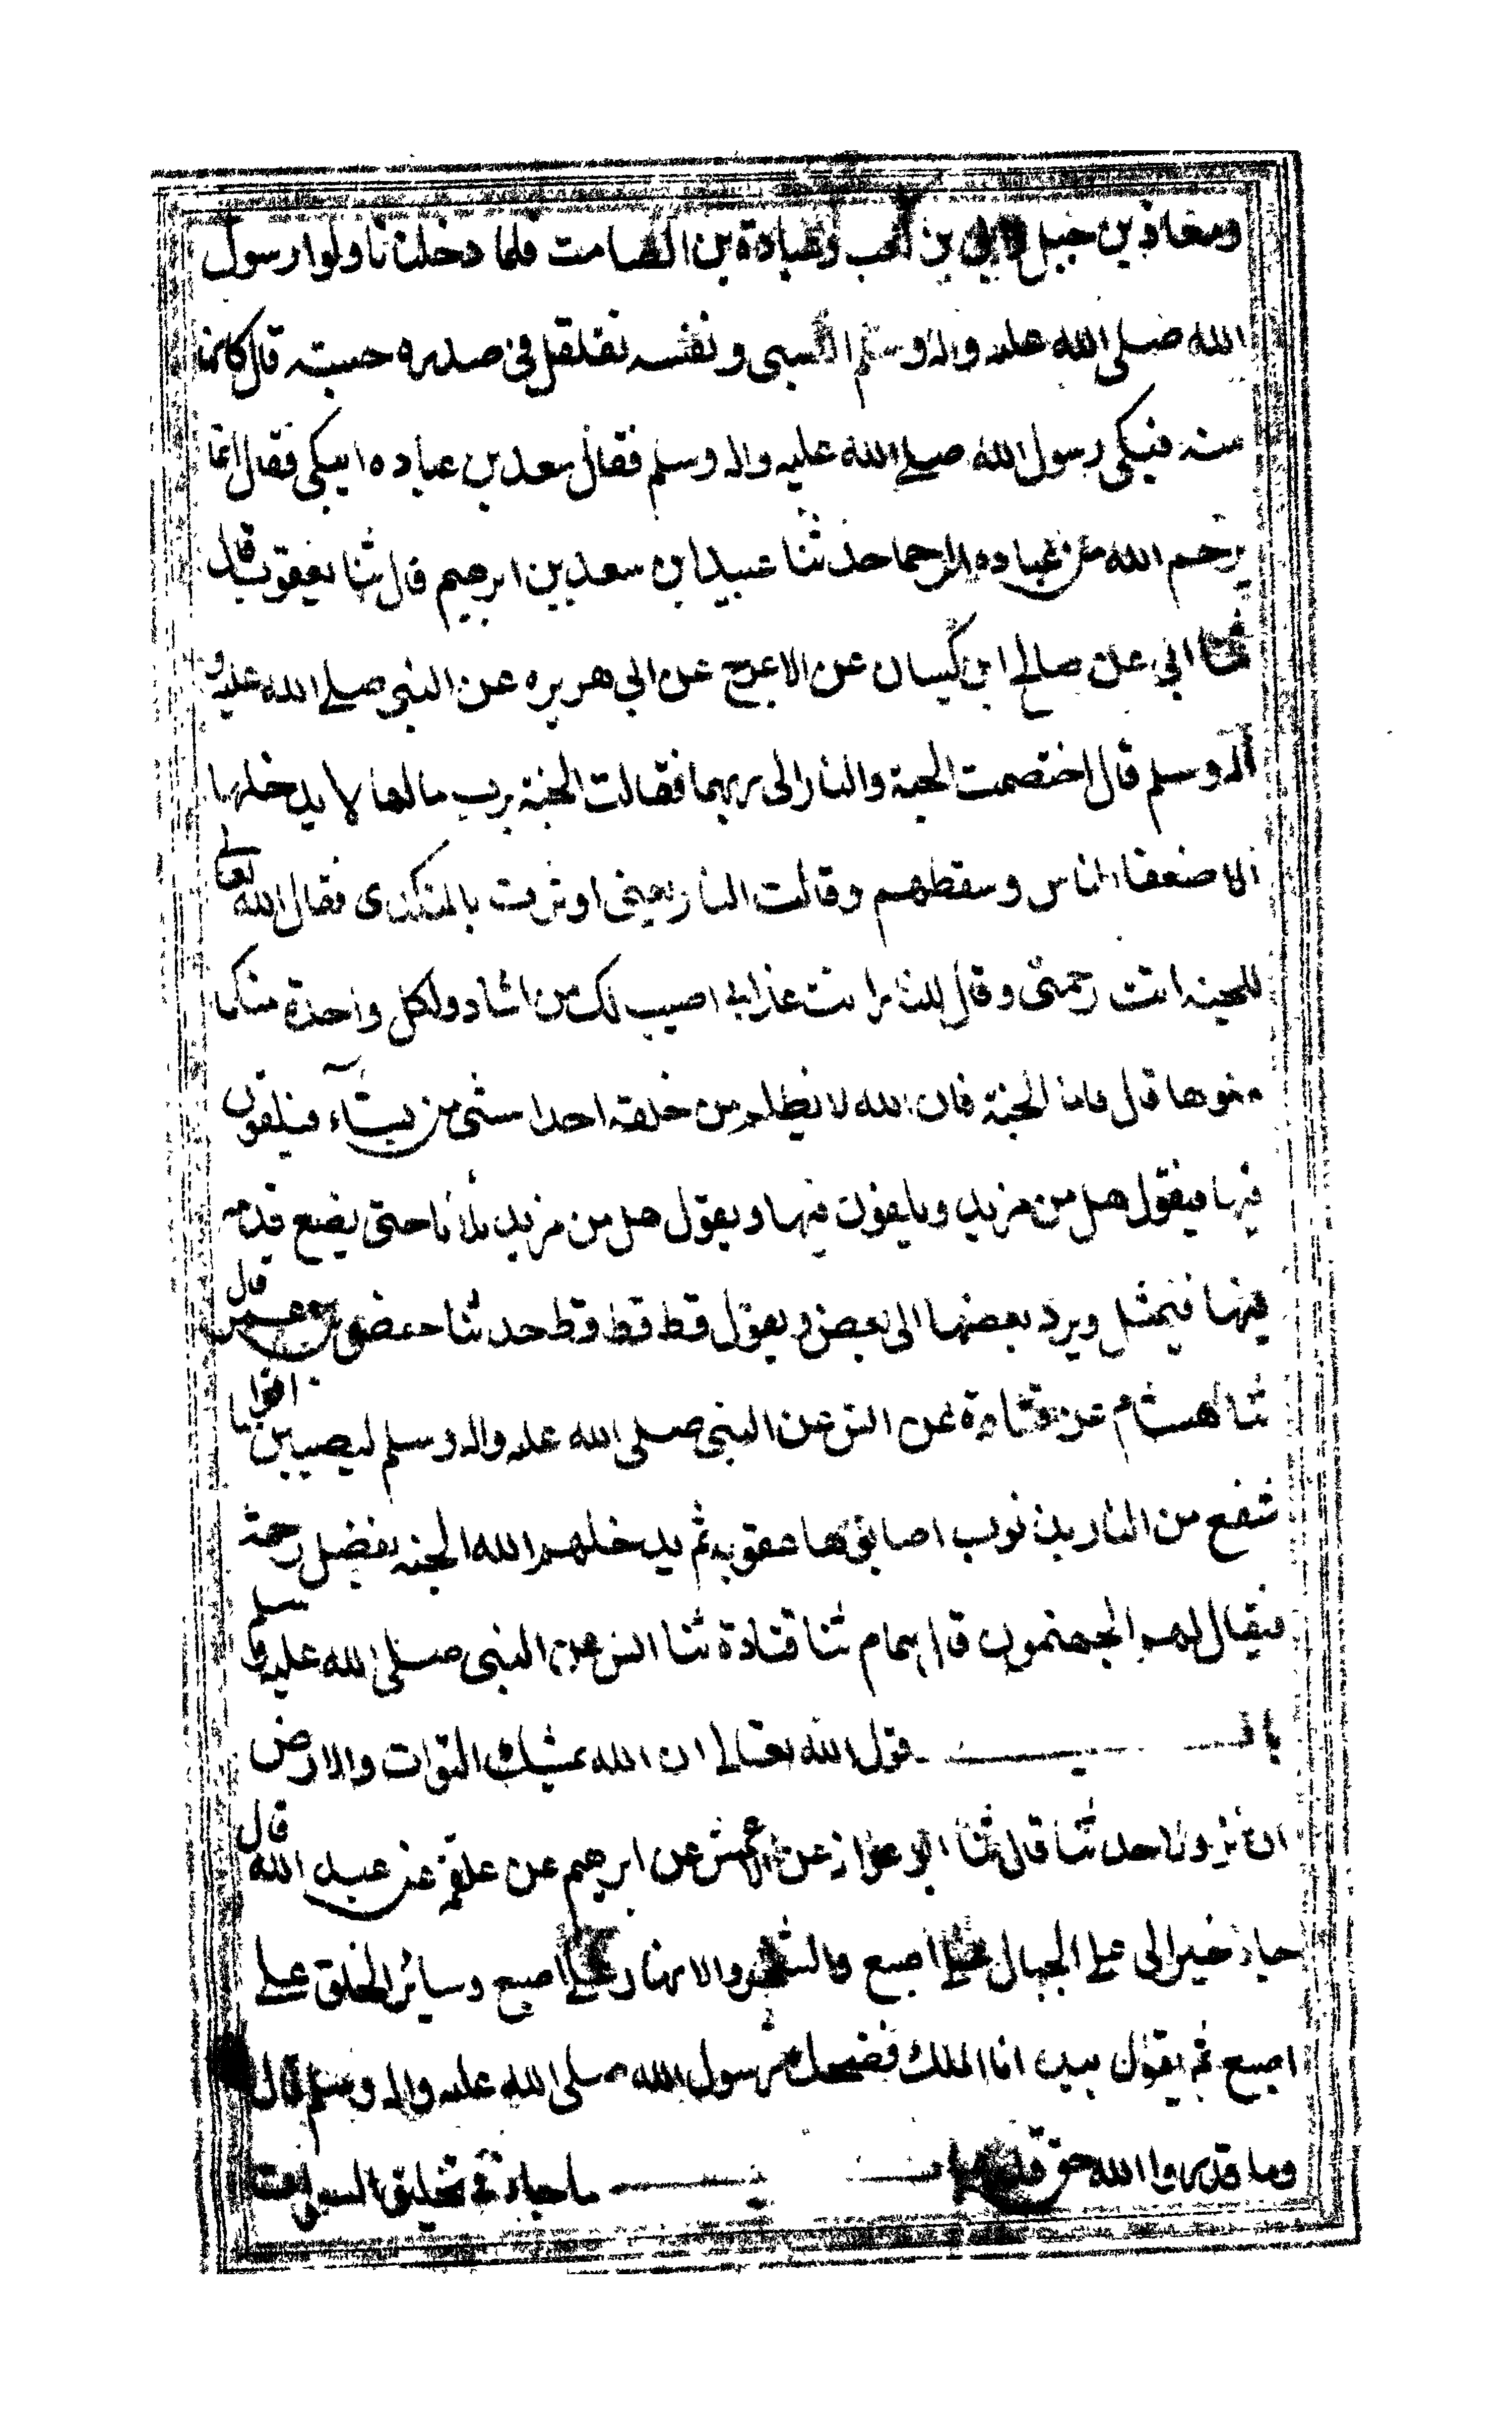 ومعاذ بن جبل وابي بن كعب وعبادة بن الصامت فلما دخلنا ناولوا رسول
الله صلى الله عليه واله وسلم الصبى ونفسه تقلقل فى صدره حسبته قال كانها
شنه فبكى رسول الله صلے الله عليه واله وسلم فقال سعد بن عباده ابتكى فقال انما
يرحم الله من عباده الرحما حدثنا عبيد ابن سعد بن ابرهيم قال ثنا يعقوب قال
ثنا ابي عن صالح ابن كيسان عن الاعرج عن ابي هريره عن النبى صلے الله عليه و
آله وسلم قال اختصمت الجنة والنار الى ربهما فقالت الجنة يرب مالها لا يدخلها
الا ضعفا الناس وسقطهم وقالت النار يعنى اوثرت بالمتكبرى فقال الله تعالى
للجنه انت رحمتى وقال للنار انت عذابى اصيب بك من اشاء ولكل واحدة منكما
ملوها قال فاما الجنة فان الله لا يظلم من خلقه احدا ينشى من يشآء فيلقون
فيها فيقول هل من مزيد ويلقون فيها ويقول هل من مزيد ثلاثا حتى يضع قدمه
فيها فيمتلى ويرد بعضها الى بعض ويقول قط قط قط حدثنا حفص بن عمر قال
ثنا هشام عن قتادة عن انس عن النبى صلى الله عليه واله وسلم ليصيبن اقواما
شفع من النار بذنوب اصابوها عقوبه ثم يدخلهم الله الجنه بفضل رحمته
فيقال لهم الجهنمون قال همام ثنا قتادة ثنا انس عن النبى صلى الله عليه وسلم
باب قول الله تعالى ان الله يمسك السموات والارض
ان تزولا حدثنا قال ثنا ابو عوانه عن الاعمش عن ابرهيم عن علقمة عن عبد الله قال
جاء حبر الى على الجبال على اصبع والشجر والانهار على اصبع وسائر الخلق على
اصبع ثم يقول بيده انا الملك فضحك رسول الله صلى الله عليه واله وسلم قال
وما قدروا الله حق قدره باب ما جاء فى تخليق السموات